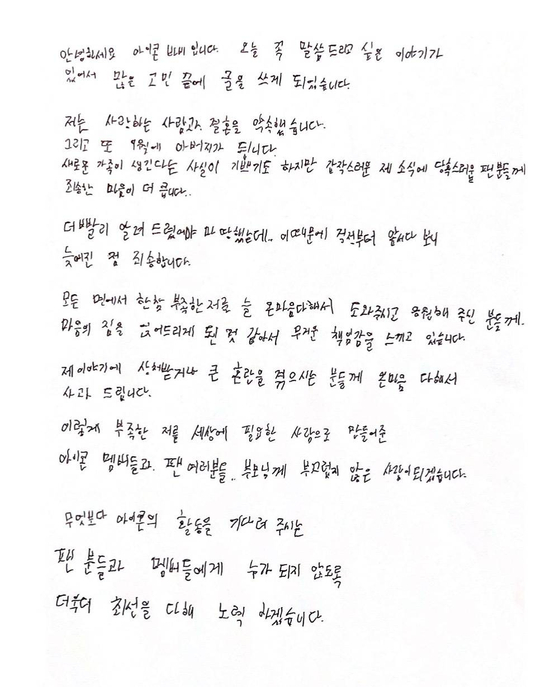 안녕하세요 아이콘 바비 입니다. 오늘 꼭 말씀 드리고 싶은 이야기가
있어서 많은 고민 끝에 글을 쓰게 되었습니다.
저는 사랑하는 사람과 결혼을 약속했습니다.
그리고 또 9월에 아버지가 됩니다.
새로운 가족이 생긴다는 사실이 기쁘기도 하지만 갑작스러운 제 소식에 당혹스러울 팬분들께
죄송한 마음이 더 큽니다..
더 빨리 알려 드렸어야 마땅했는데.. 이 때문에 걱정부터 앞서다 보니
늦어진 점 죄송합니다.
모든 면에서 한참 부족한 저를 늘 온마음다해서 도와주시고 응원해 주신 분들께.
마음의 짐을 얹어드리게 된 것 같아서 무거운 책임감을 느끼고 있습니다.
제 이야기에 상처받거나 큰 혼란을 겪으시는 분들께 온마음 다해서
사과 드립니다.
이렇게 부족한 저를 세상에 필요한 사람으로 만들어준
아이콘 멤버들과. 팬 여러분들.. 부모님께 부끄럽지 않은 사람이되겠습니다.
무엇보다 아이콘의 활동을 기다려 주시는
팬 분들과 멤버들에게 누가 되지 않도록
더욱더 최선을 다해 노력 하겠습니다.